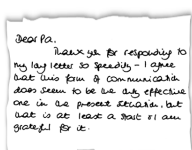 Dear Pa.
Thank you for responding to
my long letter so speedily - I agree
that this form of communication
does seem to be the only effective
one in the present situation, but
that is at least a start & I am
grateful for it.